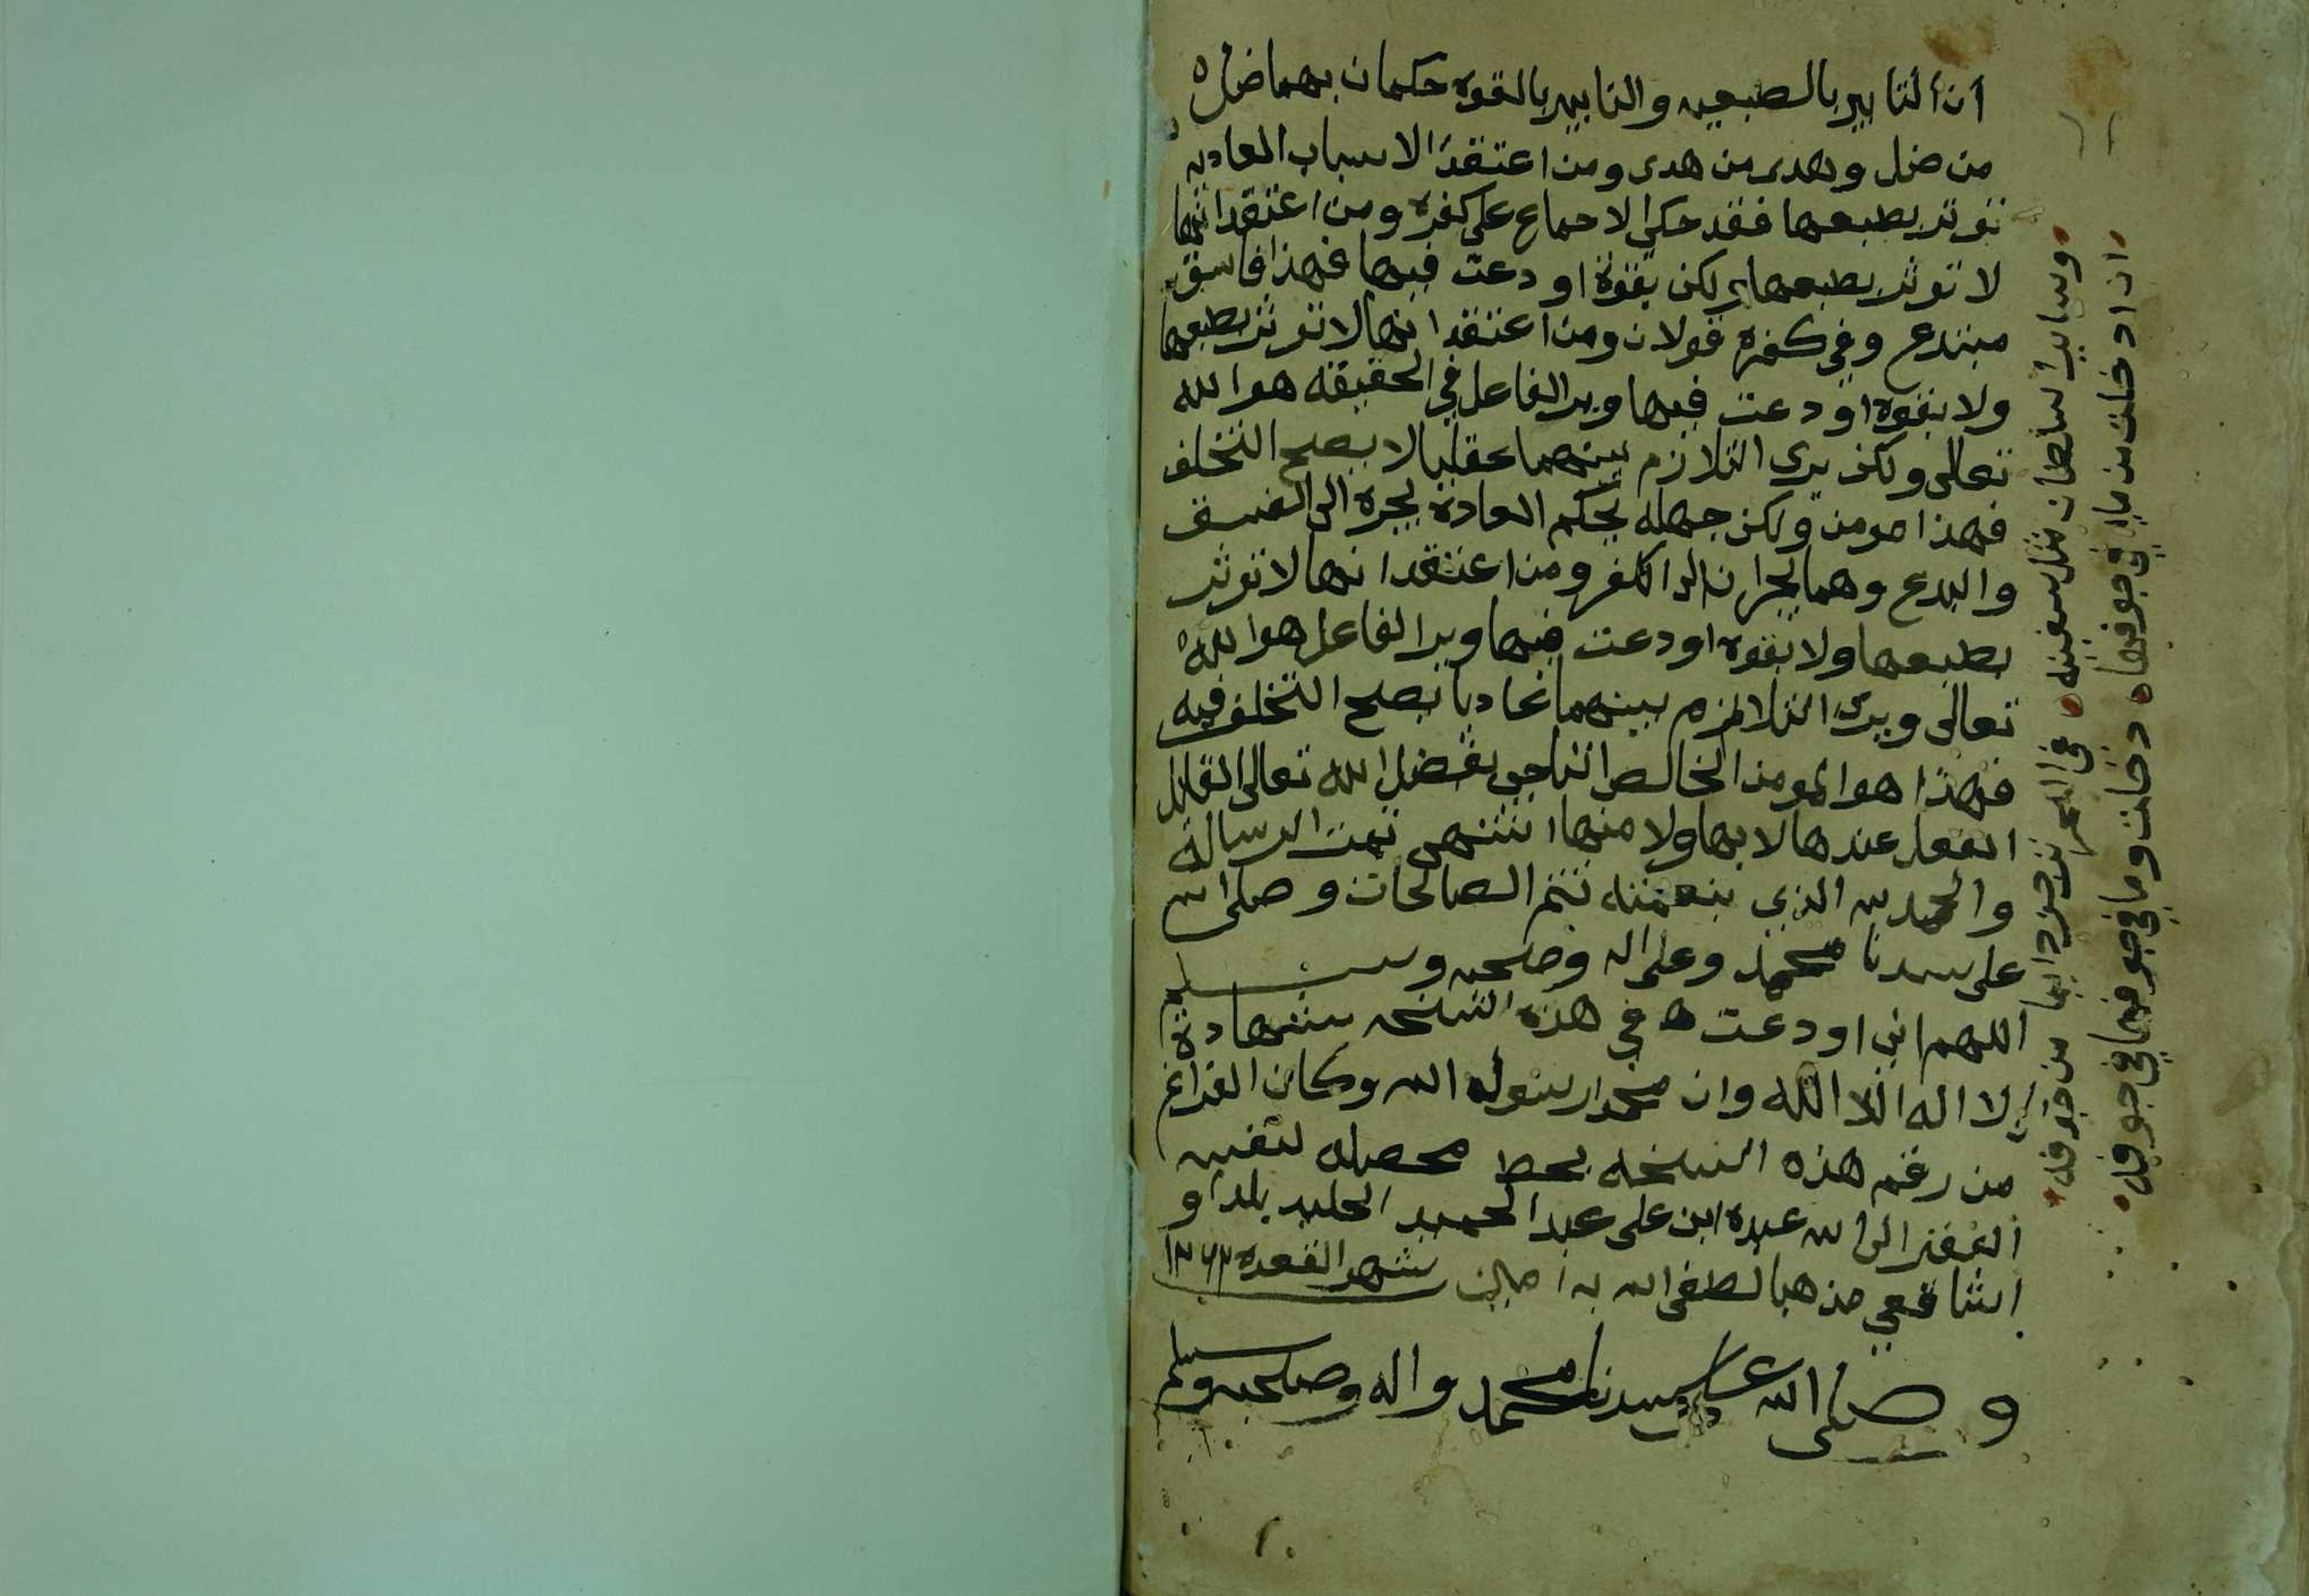 ان التاثير بالطبعيه والتاثير بالقوه حكمان بهما ضل
من ضل وهدى من هدى ومن اعتقد الاسباب العاديه
توثر بطبعها فقد حكي الاجماع على كفره ومن اعتقد انها
لا توثر بطبعها بل لكن بقوة اودعت فيها فهذا فاسق
مبتدع وفي كفره قولان ومن اعتقد انها لا توثر بطبعها
ولا بقوه اودعت فيها ويرا الفاعل في الحقيقه هو الله
تعالى ولكن يرى التلازم بينهما عقليا لا يصح التخلف
فهذا مومن ولكن جهله بحكم العادة يجره الى الفسق
والبدع وهما يجران الى الكفر ومن اعتقد انها لا توثر
بطبعها ولا بقوه اودعت فيها ويرا الفاعل هو الله
تعالى ويرى التلازم بينهما عاديا يصح التخلف فيه
فهذا هو المومن الخالص الناجي بفضل الله تعالى القايل
الفعل عندها لا بها ولا منها انتهى تمت الرسالة
والحمد لله الذي بنعمته تتم الصالحات وصلى الله
على سيدنا محمد وعلى اله وصحبه وسلم
اللهم اني اودعت في هذه النسخه شهادة
لا اله الا الله وان محمدا رسول الله وكان الفراغ
من رقم هذه النسخه بخط محصله لنفسه
الفقير الى الله عبده ابن على عبد الحميد بلدا و
الشافعي مذهبا لطف الله به امين شهر القعده
وصلى الله على سيدنا محمد واله وصحبه وسلم
وساير السلطان مثل سفينه في البحر دايما من خوفه
ان ادخلت من ماء في جوفها دخلت وما في جوفها في جوفه